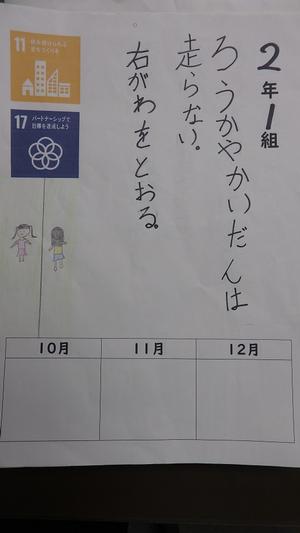 2年1組
ろうかやかいだんは
走らない。
右がわをとおる。
11 住み続けられる
まちづくりを
17 パートナーシップで
目標を達成しよう
10月 11月 12月